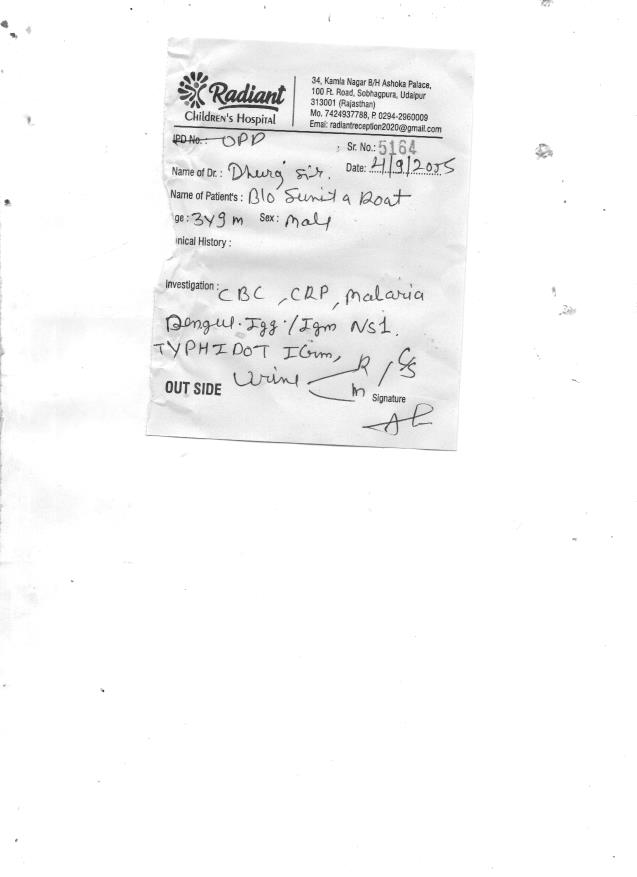 Radiant
Children's Hospital
34, Kamla Nagar B/H Ashoka Palace,
100 Ft. Road, Sobhagpura, Udaipur
313001 (Rajasthan)
Mo. 7424937788, P. 0294-2960009
Emai: radiantreception2020@gmail.com
IPD No.: OPD
Sr. No.: 5164
Name of Dr.: Dhuraj sir. Date: 4/9/2025
Name of Patient's: B/o Sunita Roat
ge: 3y9m Sex: Male
inical History:
Investigation: CBC, CRP, Malaria
Dengue. Igg/Igm Ns1.
TYPHIDOT IGm,
Urine R/M C/S
OUT SIDE
Signature